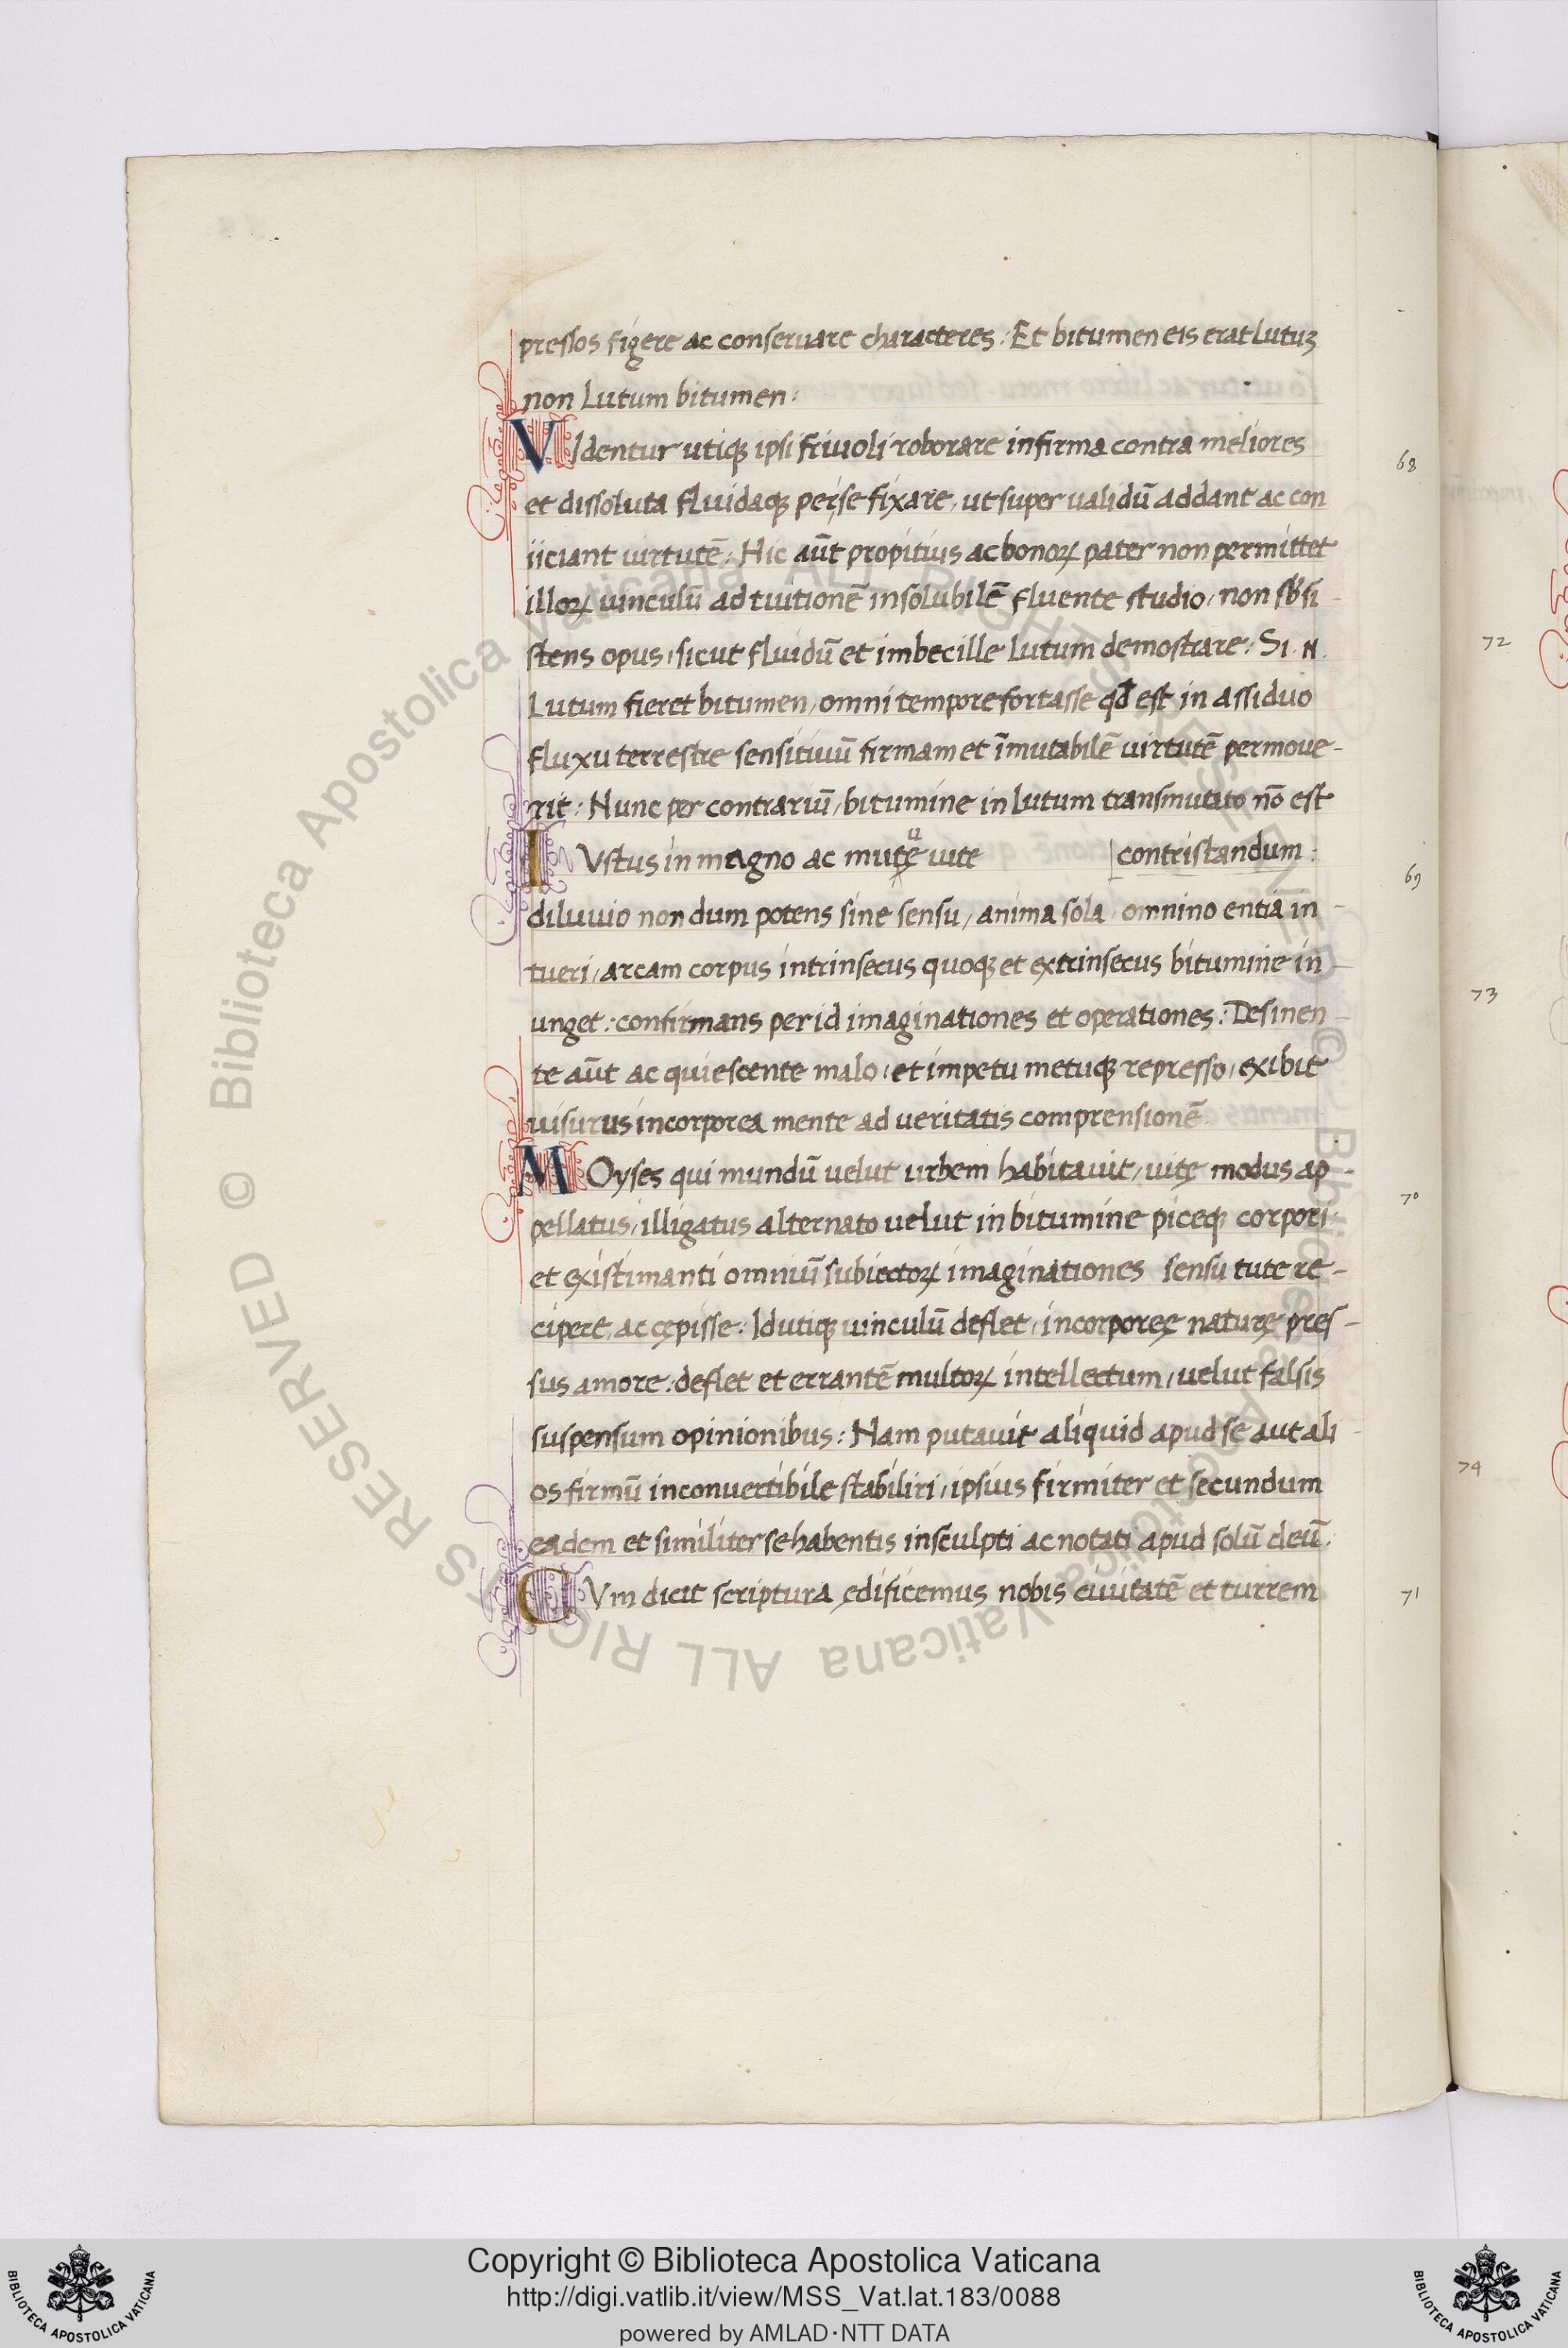 pressos figere ac conseruare characteres: Et bitumen eis erat Lutuꝫ
non Lutum bitumen:
VIdentur utiqꝫ ipsi friuoli roborare infirma contra meliores
68
et dissoluta fluidaqꝫ per se fixare, ut super ualidū addant ac con
iiciant uirtutē: Hic aūt propitius ac bonoꝝ pater non permittet
illoꝝ uinculū ad tuitionē insolubilē fluente studio, non sb̓si-
stens opus, sicut fluidū et imbecille lutum demostrare: Si .N.
Lutum fieret bitumen, omni tempore fortasse qd̄ est in assiduo
fluxu terrestre sensitiuū firmam et īmutabilē uirtutē permoue-
rit: Nunc per contrariū, bitumine in lutum transmutato nō est
IVstus in magno ac mutę uite contristandum:
69
diluuio nondum potens sine sensu, anima sola, omnino entia in-
tueri, arcam corpus intrinsecus quoqꝫ et extrinsecus bitumine in-
unget: confirmans per id imaginationes et operationes: Desinen-
te aūt ac quiescente malo, et impetu metuqꝫ represso, exibit
uisurus incorporea mente ad ueritatis comprensionē
MOyses qui mundū uelut urbem habitauit, uitę modus ap-
70
pellatus, illigatus alternato uelut in bitumine piceqꝫ corpori
et existimanti omniū subiectoꝝ imaginationes sensu tute re-
cipere, ac cępisse: Id utiqꝫ uinculū deflet, incorporeę naturę pres-
sus amore: deflet et errantē multoꝝ intellectum, uelut falsis
suspensum opinionibus: Nam putauit aliquid apud se aut ali-
os firmū inconuertibile stabiliri, ipsius firmiter et secundum
eadem et similiter se habentis insculpti ac notati apud solū deū:
CVm dicit scriptura ędificemus nobis ciuitatē et turrem
71
72
73
74
© Biblioteca Apostolica Vaticana ALL RIGHTS RESERVED
© Biblioteca Apostolica Vaticana ALL RIGHTS RESERVED
Copyright © Biblioteca Apostolica Vaticana
http://digi.vatlib.it/view/MSS_Vat.lat.183/0088
powered by AMLAD·NTT DATA
BIBLIOTECA APOSTOLICA VATICANA
BIBLIOTECA APOSTOLICA VATICANA